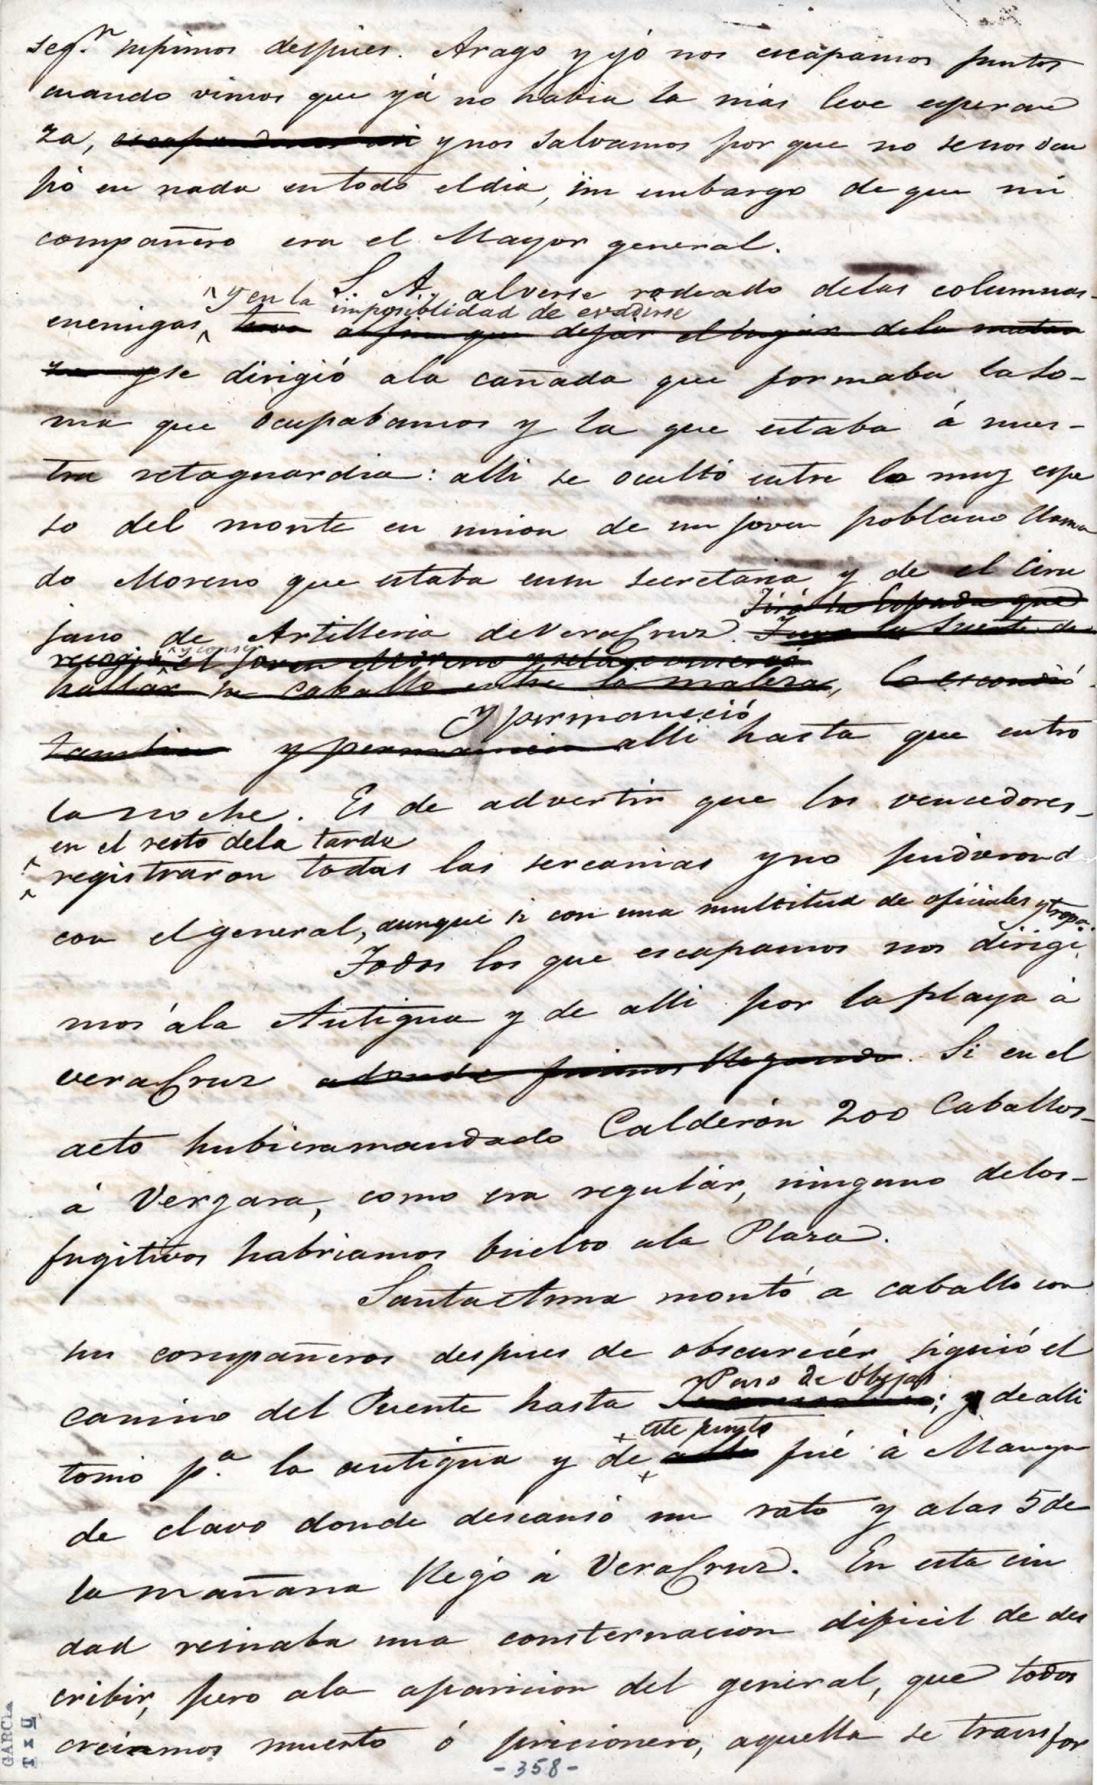 seg.n supimos despues. Arago y yó nos escápamos juntos
cuando vimos que yá no habia la más leve esperan
za, escapandonos asi y nos salvamos por que no se nos ocu
pó en nada en todo el dia, sin embargo de que mi
compañero era el Mayor general.
S. A. al verse rodeado de las columnas
y en la imposiblidad de evadirse
enemigas, tuvo á fin que dejar el lugar de la matan
za y se dirigió a la cañada que formaba la lo-
ma que ocupabamos y la que estaba á nues-
tra retaguardia: alli se ocultó entre lo muy espe
so del monte en union de un joven poblano llama
do Moreno que estaba en su secretaria y de el Ciru
Tiró la Espada que
jano de Artilleria de VeraCruz. Tuvo la suerte de
recogió el joven Moreno y
hallar su caballo entre la maleza, lo escondió
y permaneció
tambien y permanecio alli hasta que entro
la noche. Es de advertir que los vencedores
en el resto de la tarde
registraron todas las sercanias y no pudieron d
con el general, aunque si con una multitud de oficiales y tropa.
Todos los que escapamos nos dirigi
mos á la Antigua y de alli por la playa á
veraCruz adonde fuimos llegando. Si en el
acto hubiera mandado Calderón 200 Caballos
á Vergara, como era regulár, ninguno de los
fugitivos habriamos buelto a la Plaza.
Santa Anna montó a caballo con
sus compañeros despues de obscurecér siguió el
Paso de Obejas
camino del Puente hasta ; y de alli
este punto
tomó p.a la antigua y de alli fué á Manga
de clavo donde descansó un rato y a las 5 de
la mañana llegó á VeraCruz. En esta ciu
dad reinaba una consternacion dificil de des
cribir, pero a la aparicion del general, que todos
creiamos muerto ó pricionero, aquella se transfor
-358-
GARCIA